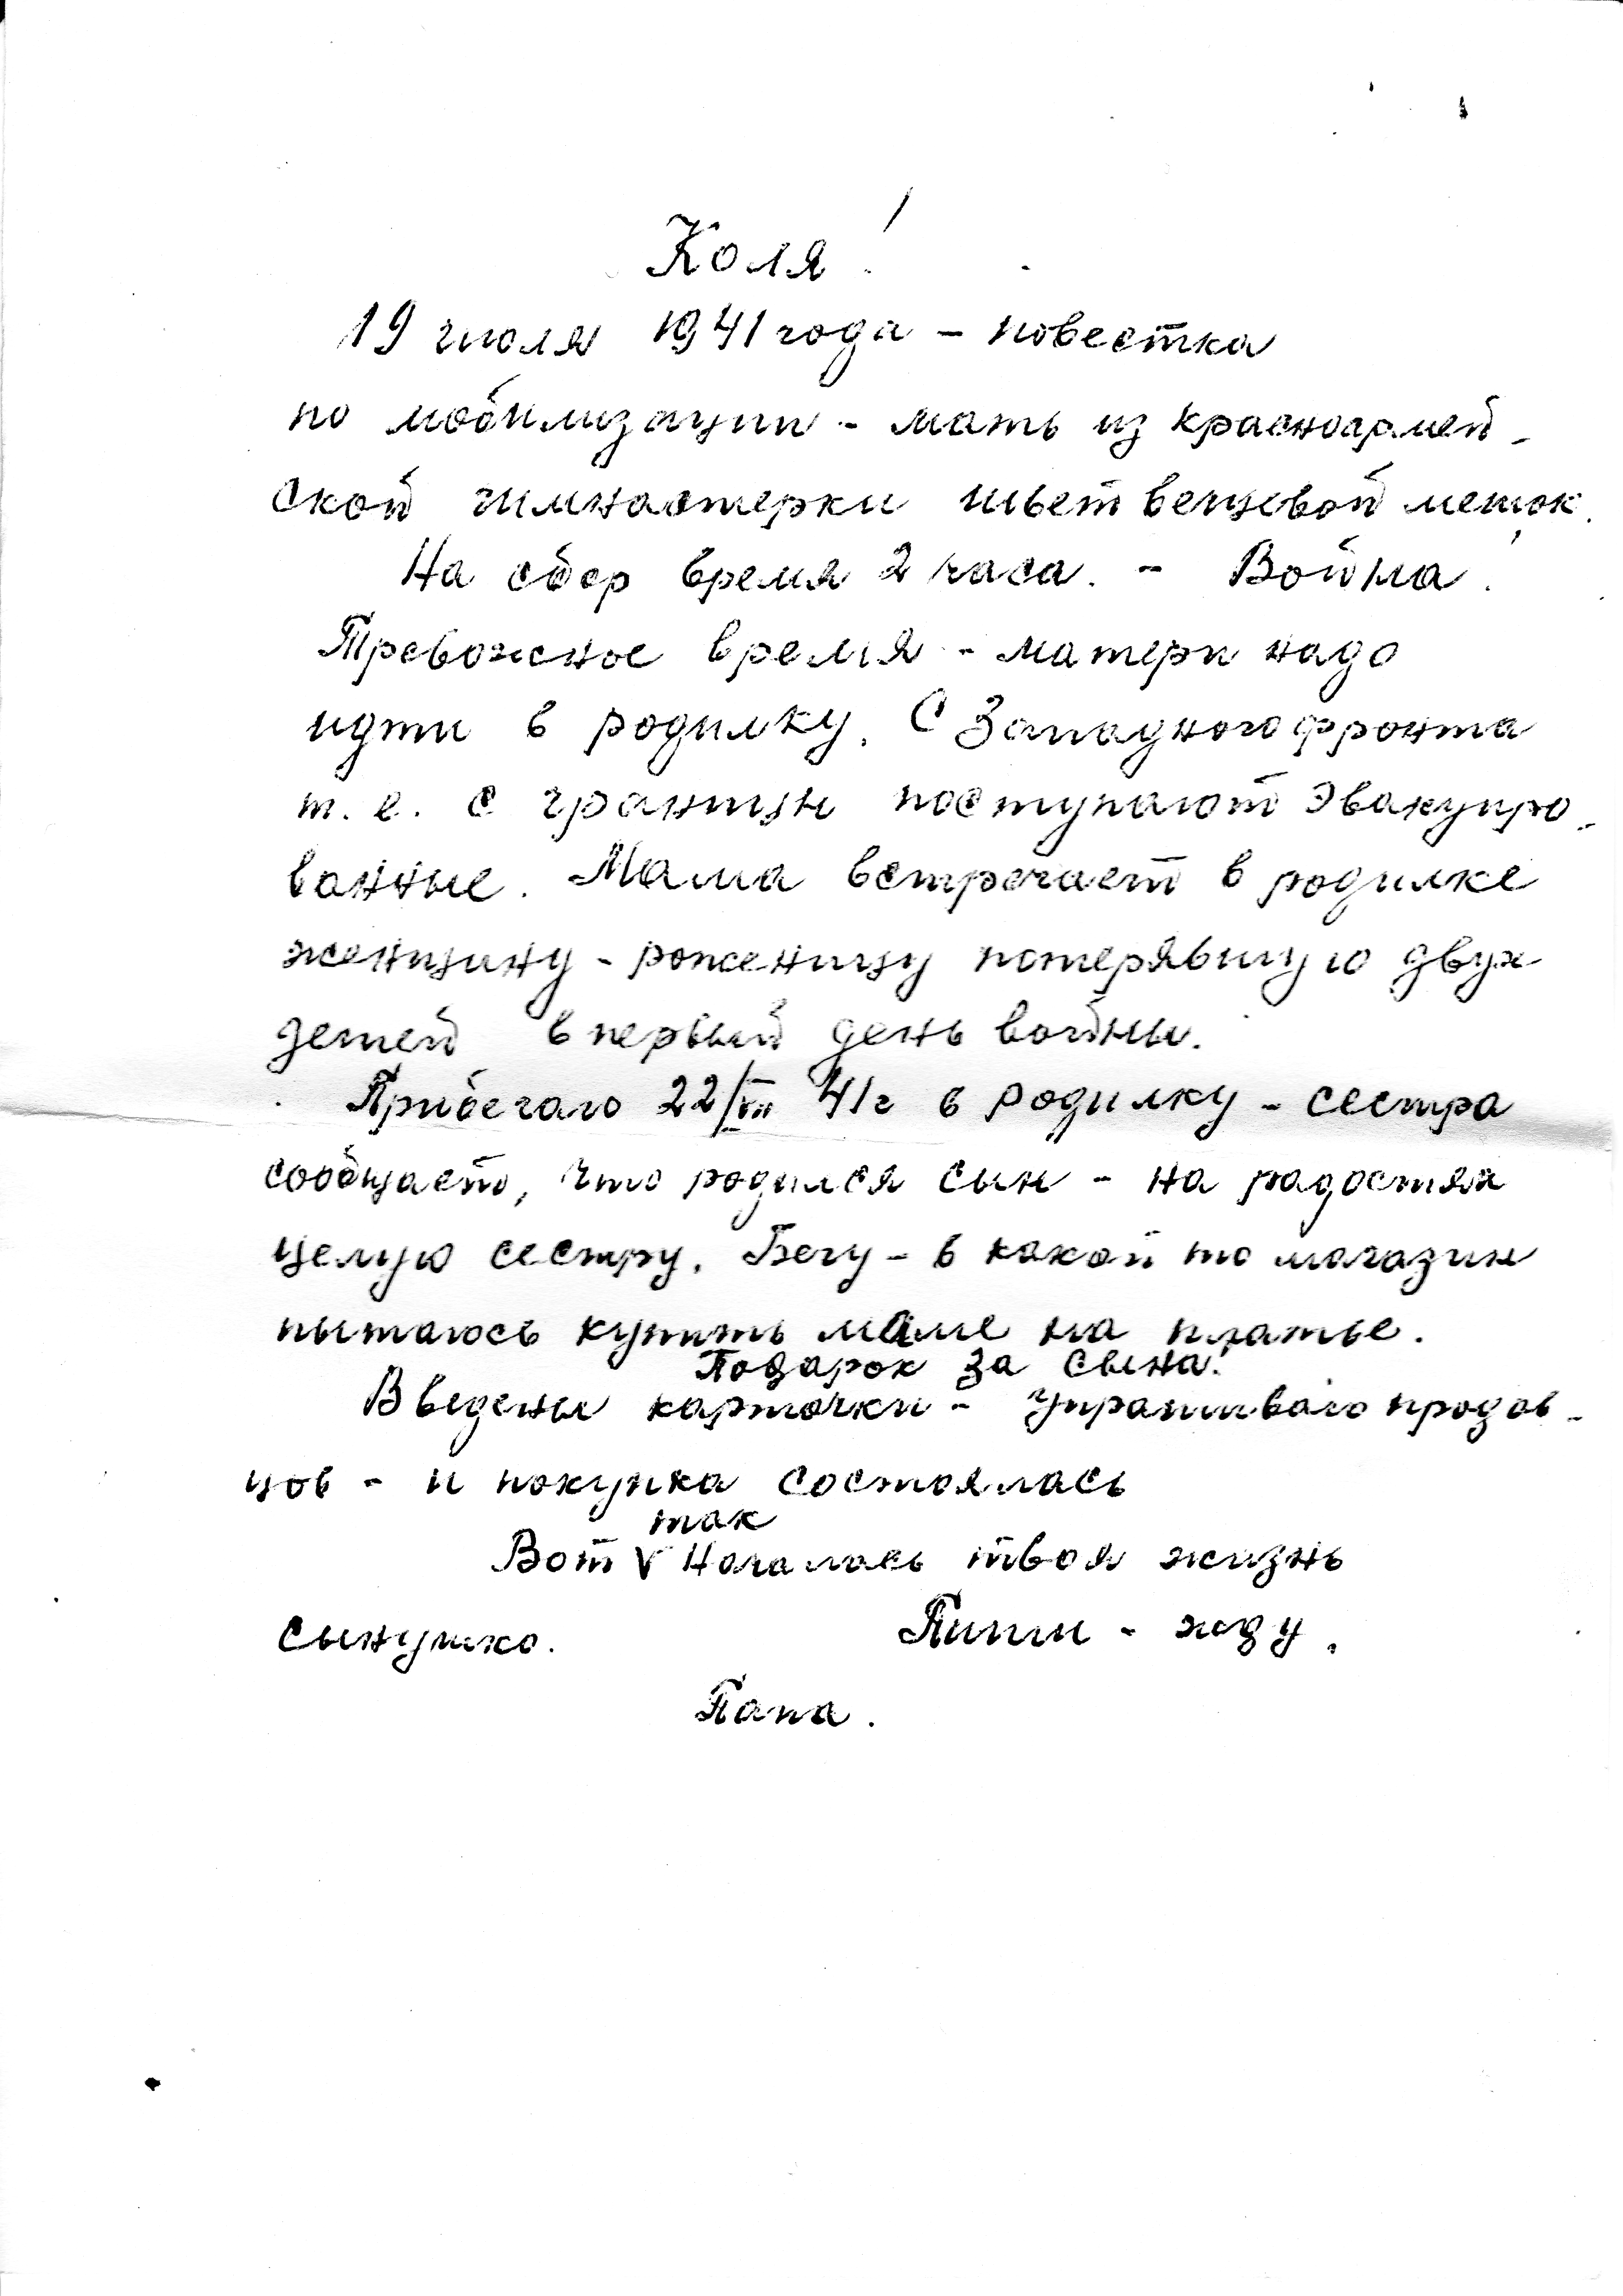 Коля!
19 июля 1941 года - повестка
по мобилизации - мать из красноармей-
ской гимнастерки шьет вещевой мешок.
На сбор время 2 часа. - Война!
Тревожное время - матери надо
идти в родилку. С Западного фронта
т. е. с границы поступают эвакуиро-
ванные. Мама встречает в родилке
женщину - роженицу потерявшую двух
детей в первый день войны.
Прибегаю 22/VII 41г в родилку - сестра
сообщает, что родился сын - на радостях
целую сестру. Бегу - в какой то магазин
пытаюсь купить маме на платье.
Подарок за сына!
Введены карточки - Упрашиваю продав-
цов - и покупка состоялась
так
Вот V началась твоя жизнь
сынушко. Пиши - жду.
Папа.